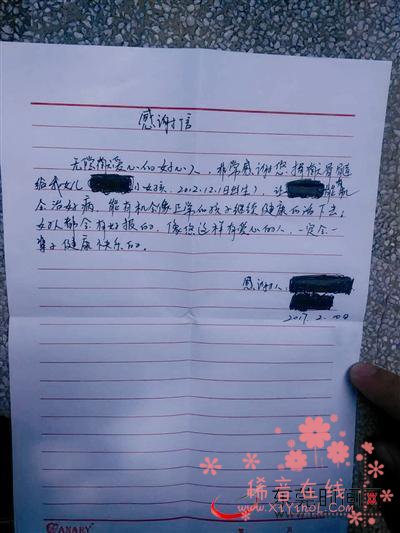 感谢信
无偿献爱心的好心人，非常感谢您捐献骨髓
给我女儿（小女孩，2012.12.1日出生），让能有机
会治好病，能有机会像正常的孩子继续健康的活下去，
好人都会有好报的，像您这样有爱心的人，一定会一
辈子健康快乐的。
感谢人：
2017.2.
稀音在线
www.XiYinOL.Com
CANARY